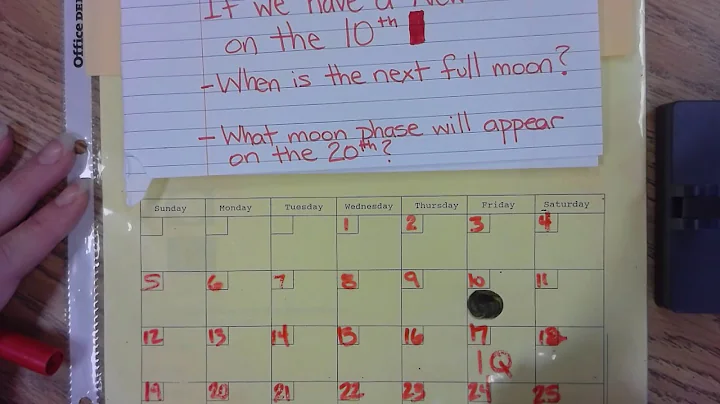 Office DE
If we have a New
on the 10th
- When is the next full moon?
- What moon phase will appear
on the 20th?
Sunday Monday Tuesday Wednesday Thursday Friday Saturday
1 2 3 4
5 6 7 8 9 10 11
12 13 14 15 16 17 18
1Q
19 20 21 22 23 24 25